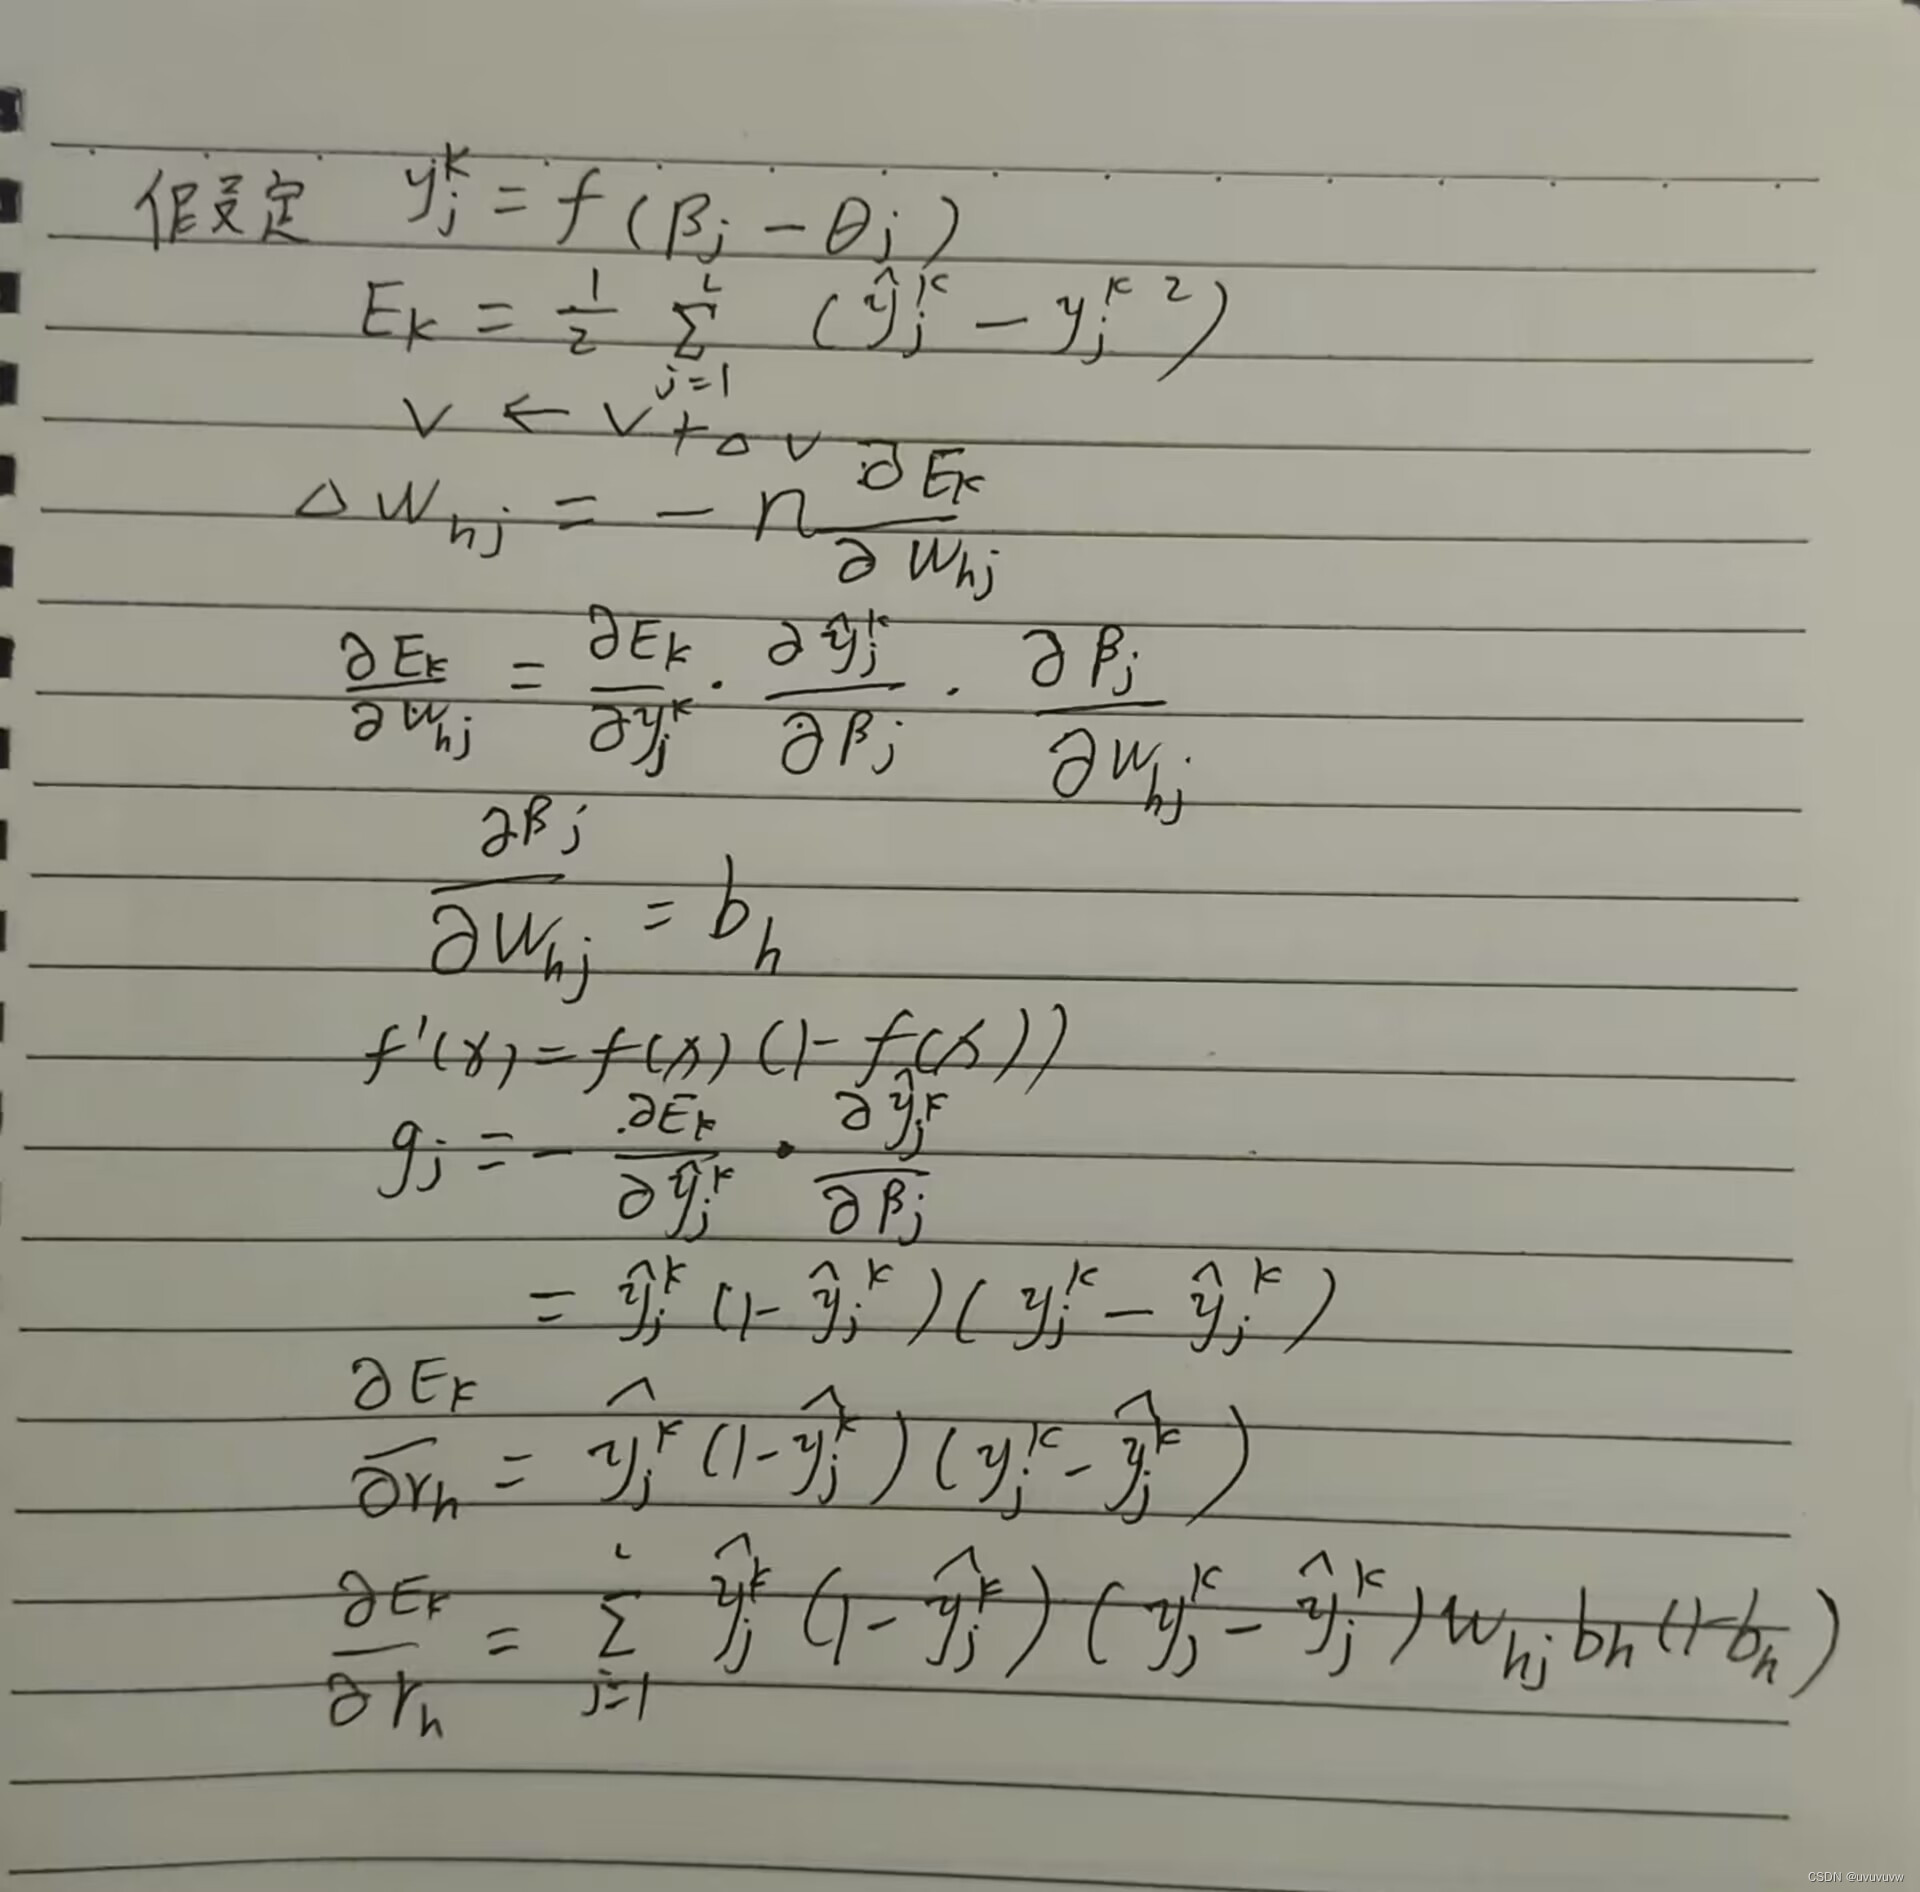 假设定 y_j^k = f(β_j − θ_j)
E_k = 1/2 Σ_{j=1}^{l} (ŷ_j^k − y_j^{k 2})
v ← v + Δv
Δw_{hj} = −η ∂E_k/∂w_{hj}
∂E_k/∂w_{hj} = ∂E_k/∂y_j^k · ∂ŷ_j^k/∂β_j · ∂β_j/∂w_{hj}
∂β_j/∂w_{hj} = b_h
f'(x) = f(x)(1 − f(x))
g_j = − ∂E_k/∂ŷ_j^k · ∂ŷ_j^k/∂β_j
= ŷ_j^k (1 − ŷ_j^k)(y_j^k − ŷ_j^k)
∂E_k/∂r_h = ŷ_j^k (1 − ŷ_j^k)(y_j^k − ŷ_j^k)
∂E_k/∂r_h = Σ_{j=1}^{l} ŷ_j^k (1 − ŷ_j^k)(y_j^k − ŷ_j^k) w_{hj} b_h (1 − b_h)
CSDN @uvuvuvw